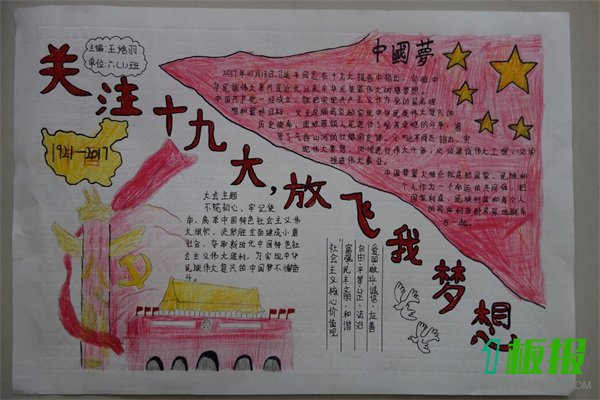 主编:王浩羽
单位:六(1)班
关注十九大,放飞我梦想
中國夢
2017年10月18日,习近平同志在十九大报告中指出,实现中
华民族伟大复兴是近代以来中华民族最伟大的梦想。
中国共产党一经成立,就把实现共产主义作为党的最高理
想和最终目标,义无反顾肩负起实现中华民族伟大复兴的
历史使命,团结带领人民进行了艰苦卓绝的斗争,谱
写了气吞山河的壮丽史诗。习近平同志指出,实
现伟大梦想,必须进行伟大斗争,必须建设伟大工程,必须
推进伟大事业。
中国梦最大特点就是把国家、民族和
个人作为一个命运的共同体,把
国家利益、民族利益和每个人
的具体利益都紧紧地联系
在一起。
1921-2017
大会主题
不忘初心,牢记使
命,高举中国特色社会主义伟
大旗帜,决胜全面建成小康
社会,夺取新时代中国特色社
会主义伟大胜利,为实现中华
民族伟大复兴的中国梦不懈奋
斗。
爱国·敬业·诚信·友善
自由·平等·公正·法治
富强·民主·文明·和谐
社会主义核心价值观
板报
WWW.1BANBAO.COM